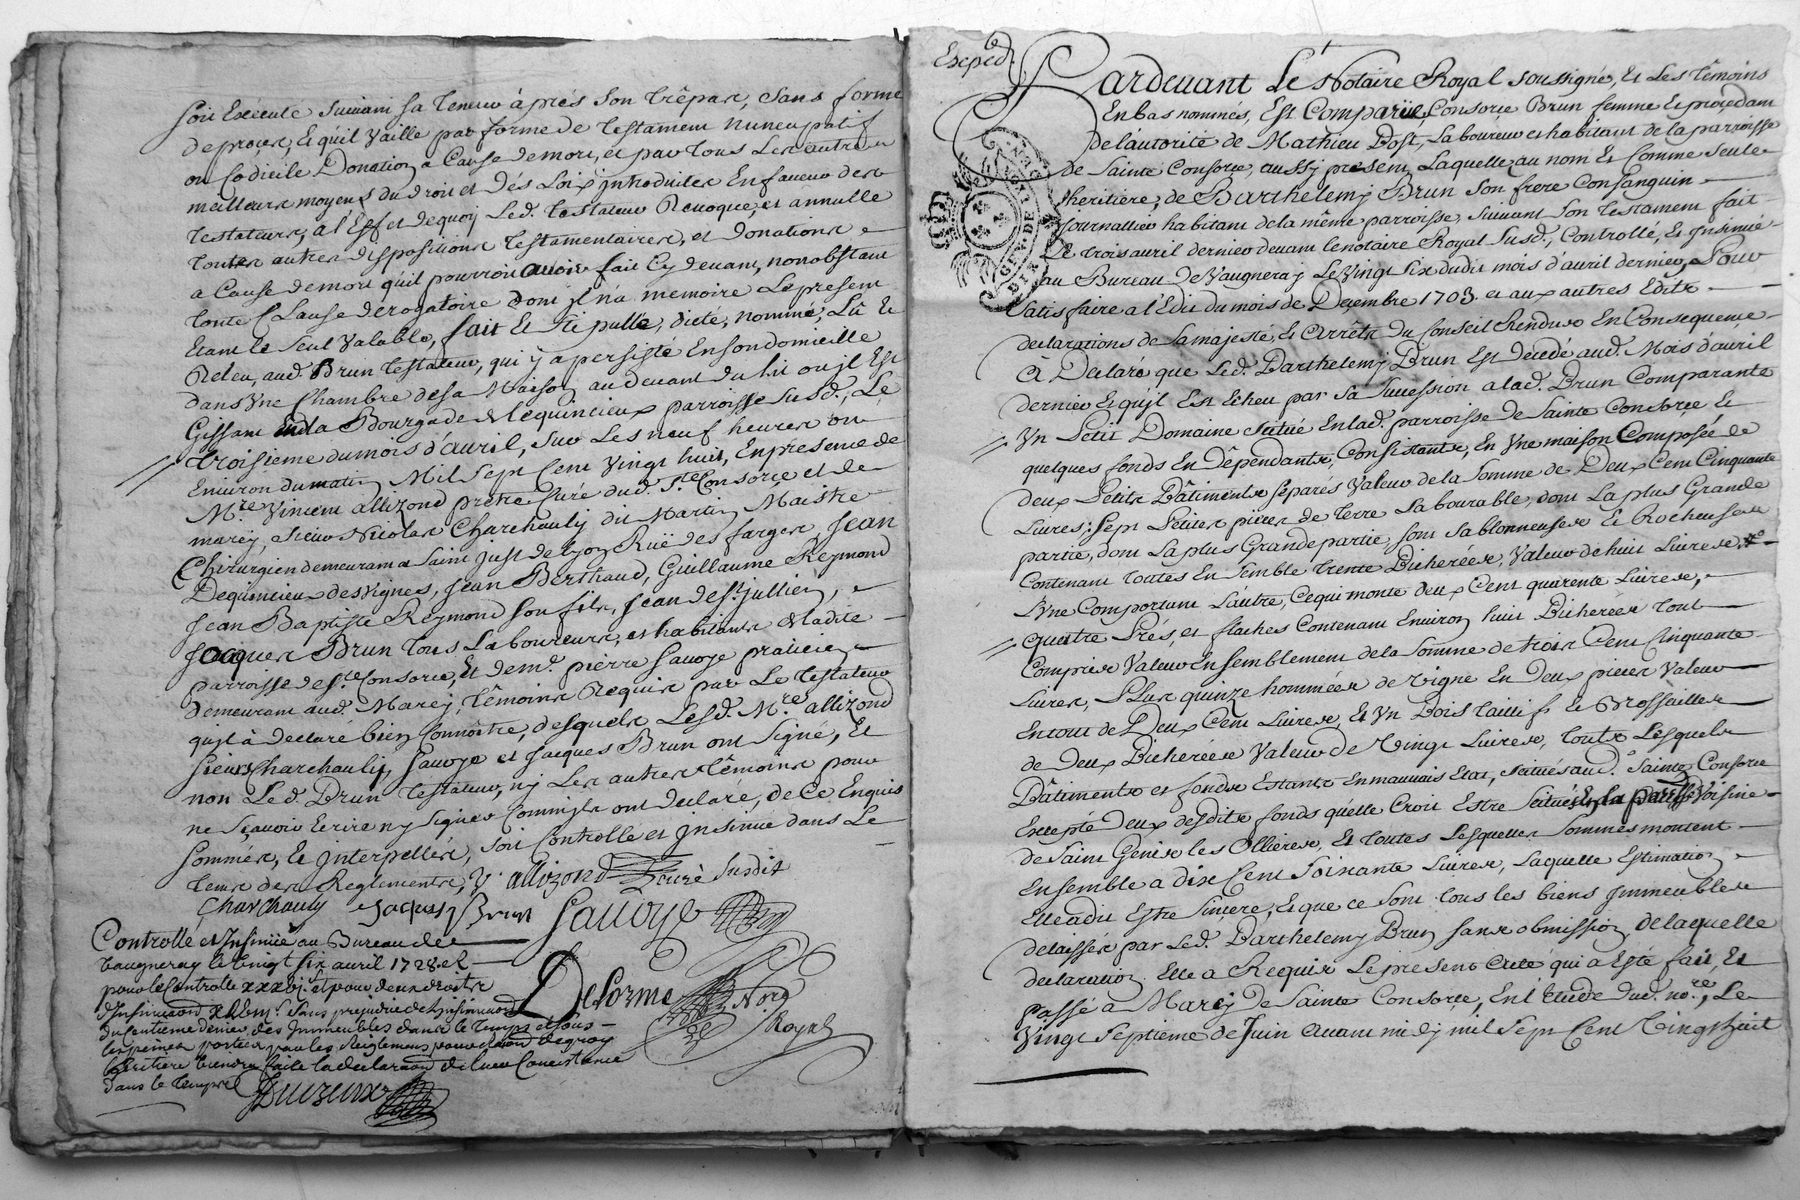 soit Exécuté suivant sa teneur après son trêpas, sans forme
de procès, Et qu'il vaille par forme de Testament nuncupatif
ou Codicile Donation a Cause de mort, et par tous Les autres
meilleurs moyens du droit et dés Loix introduites En faveur des
testateurs, a l'Effet dequoy Led. testateur Revoque, et annulle
toutes autres dispositions testamentaires, et donations
a Cause de mort qu'il pourroit avoir fait Cy devant, nonobstant
toute Clause derogatoire dont Jl n'a memoire Le present
Etant le seul valable, fait Et stipullé, dicté, nommé, Lû Et
Releu, aud. Brun testateur, qui y a persisté En son domicille
dans Vne Chambre de sa Maison au devant du lit ou jl Est
Gissant a la Bourgade de Lequincieux parroisse susd., Le
troisieme du mois d'avril, sur Les neuf heures ou
Environ du matin Mil sept Cent Vingt huit, En presence de
Mre Vincent allizond prêtre Curé dud. Ste Consorce et de
marcy, sieur Nicolas Charchauly dit Martin Maistre
Chirurgien demeurant a saint just de Lyon Ruë des farges, Jean
Dequincieux des vignes, Jean Berthaud, Guillaume Reymond
Jean Baptiste Reymond son fils, Jean de st jullien,
Jacques Brun tous Laboureurs, et habitants de ladite
parroisse de Ste Consorce, Et de me. pierre Savoye praticien
demeurant aud. Marcy, têmoins Requis par Le testateur
qu'jl à declaré bien Connoître, desquels Lesd. Mre allizond
sieurs Charchauly, Savoye et Jacques Brun ont signé, Et
non Led. Brun testateur, ny Les autres têmoins pour
ne sçavoir Ecrire ny signer Comm'jls ont declaré, de Ce Enquis
sommés, Et interpellés, soit Controllé et jnsinué dans Le
tems des Reglements, V. allizond Curé susdit
Charchauly Jacques Brun Savoye
Controllé et Insinué au Bureau de
Vaugneray le vingt six avril 1728 et
pour le Controlle
d'Insinuaon sans prejudice de l'insinuaon
du centieme denier des Immeubles dans le temps et sous
les peines portées par les Reiglemens pour raison de quoy
l'heritiere viendra faire la declaraon de leur Consistance
dans le temps
Delorme Nore
Royal
Expéd.
Pardevant Le Notaire Royal soussigné, Et Les têmoins
En bas nommés, Est Comparüe Consorce Brun femme Et procedant
de l'autorité de Mathieu Dost, Laboureur et habitant de la parroisse
de Sainte Consorce, aussy present, Laquelle au nom Et Comme seule
heritière de Barthelemy Brun son frere Consanguin
Journallier habitant de la même parroisse, suivant son Testament fait
Le trois avril dernier devant le notaire Royal susd., Controllé, Et jnsinué
au Bureau de Vaugneray Le Vingt six dudit mois d'avril dernier, Pour
satisfaire a l'Edit du mois de Decembre 1703. et aux autres Edits
declarations de sa majesté, Et Arrêts du Conseil Rendus En Consequence
A Declaré que Led. Barthelemy Brun Est decedé aud. Mois d'avril
dernier Et qu'jl Est Echeu par sa succession a lad. Brun Comparante
Vn Petit Domaine scitué En lad. parroisse de Sainte Consorce Et
quelques fonds En dêpendants, Consistants, En Vne maison Composée de
deux Petits Bâtiments separés Valeur de la somme de Deux Cent Cinquante
Livres; sept Petites pieces de terre Labourable, dont La plus Grande
partie, dont La plus Grande partie sont sablonneuses Et Rocheuses
Contenant toutes En semble trente Bicherées, Valeur de huit Livres
Lvne Comportant Lautre, Ce qui monte deux Cent quarente Livres,
quattre Prés, et flaches Contenant Environ huit Bicherées tout
Compris Valeur En semblement de la somme de trois Cent Cinquante
Livres, Plus quinze hommées de vigne En deux pieces Valeur
En tout de Deux Cent Livres, Et Vn Bois Taillif Et Brossailles
de deux Bicherées Valeur de Vingt Livres, touts Lesquels
Bâtiments et fonds Estants En mauvais Etat, scitués aud. Sainte Consorce
Excepté deux desdits fonds qu'elle Croit Estre scitués En la parrsse Voisine
de Saint Genis les Ollieres, Et toutes Lesquelles sommes montent
Ensemble a dix Cent soixante Livres, Laquelle Estimation
Elle a dit Estre sincere, Et que Ce sont tous les biens jmmeubles
delaissés par Led. Barthelemy Brun sans obmission de laquelle
declaration Elle a Requis Le present acte qui a Esté fait, Et
Passé a Marcy de Sainte Consorce, En l'Etude dud. nore, Le
Vingt septieme de Juin avant midy mil sept Cent Vingt huit